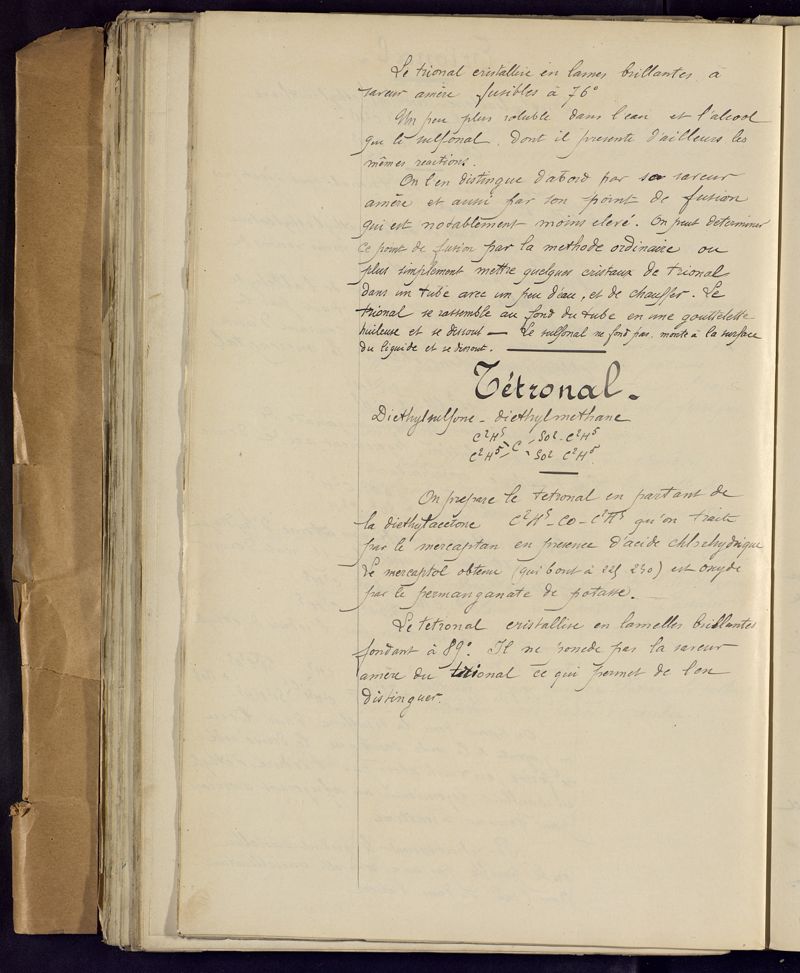 Le trional cristallise en lames brillantes, à
saveur amère fusibles à 76°
Un peu plus soluble dans l'eau et l'alcool
que le sulfonal. Dont il presente d'ailleurs les
mêmes reactions.
On l'en distingue d'abord par sa saveur
amère et aussi par son point de fusion
qui est notablement moins elevé. On peut determiner
ce point de fusion par la methode ordinaire ou
plus simplement mettre quelques cristaux de trional
dans un tube avec un peu d'eau, et de chauffer. Le
trional se rassemble au fond du tube en une gouttelette
huileuse et se dissout — Le sulfonal ne fond pas. monte à la surface
du liquide et se dissout.
Tétronal.
Diethylsulfone - diethylmethane
C²H⁵ > C < SO² - C²H⁵
C²H⁵ SO² C²H⁵
On prepare le tetronal en partant de
la diethylacetone C²H⁵-CO-C²H⁵ qu'on traite
par le mercaptan en presence d'acide chlorhydrique
Le mercaptol obtenu (qui bout à 225 230) est oxydé
par le permanganate de potasse.
Le tetronal cristallise en lamelles brillantes
fondant à 89°. Il ne possede pas la saveur
amère du trional ce qui permet de l'en
distinguer.